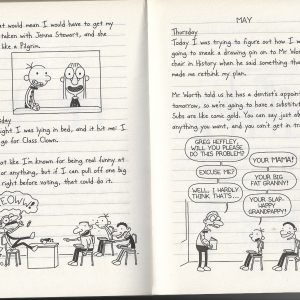 at would mean I would have to get my
taken with Jenna Stewart, and she
like a Pilgrim.
day
ght I was lying in bed, and it hit me: I
go for Class Clown.
ot like I'm known for being real funny at
or anything, but if I can pull off one big
right before voting, that could do it.
EOWW!
MAY
Thursday
Today I was trying to figure out how I w
going to sneak a drawing pin on to Mr Wor
chair in History when he said something that
made me rethink my plan.
Mr Worth told us he has a dentist's appoint
tomorrow, so we're going to have a substitut
Subs are like comic gold. You can say just ab
anything you want, and you can't get in tr
GREG HEFFLEY,
WILL YOU PLEASE
DO THIS PROBLEM?
YOUR MAMA!
EXCUSE ME?
YOUR BIG
FAT GRANNY!
WELL, I HARDLY
THINK THAT'S...
YOUR SLAP-
HAPPY
GRANDPAPPY!